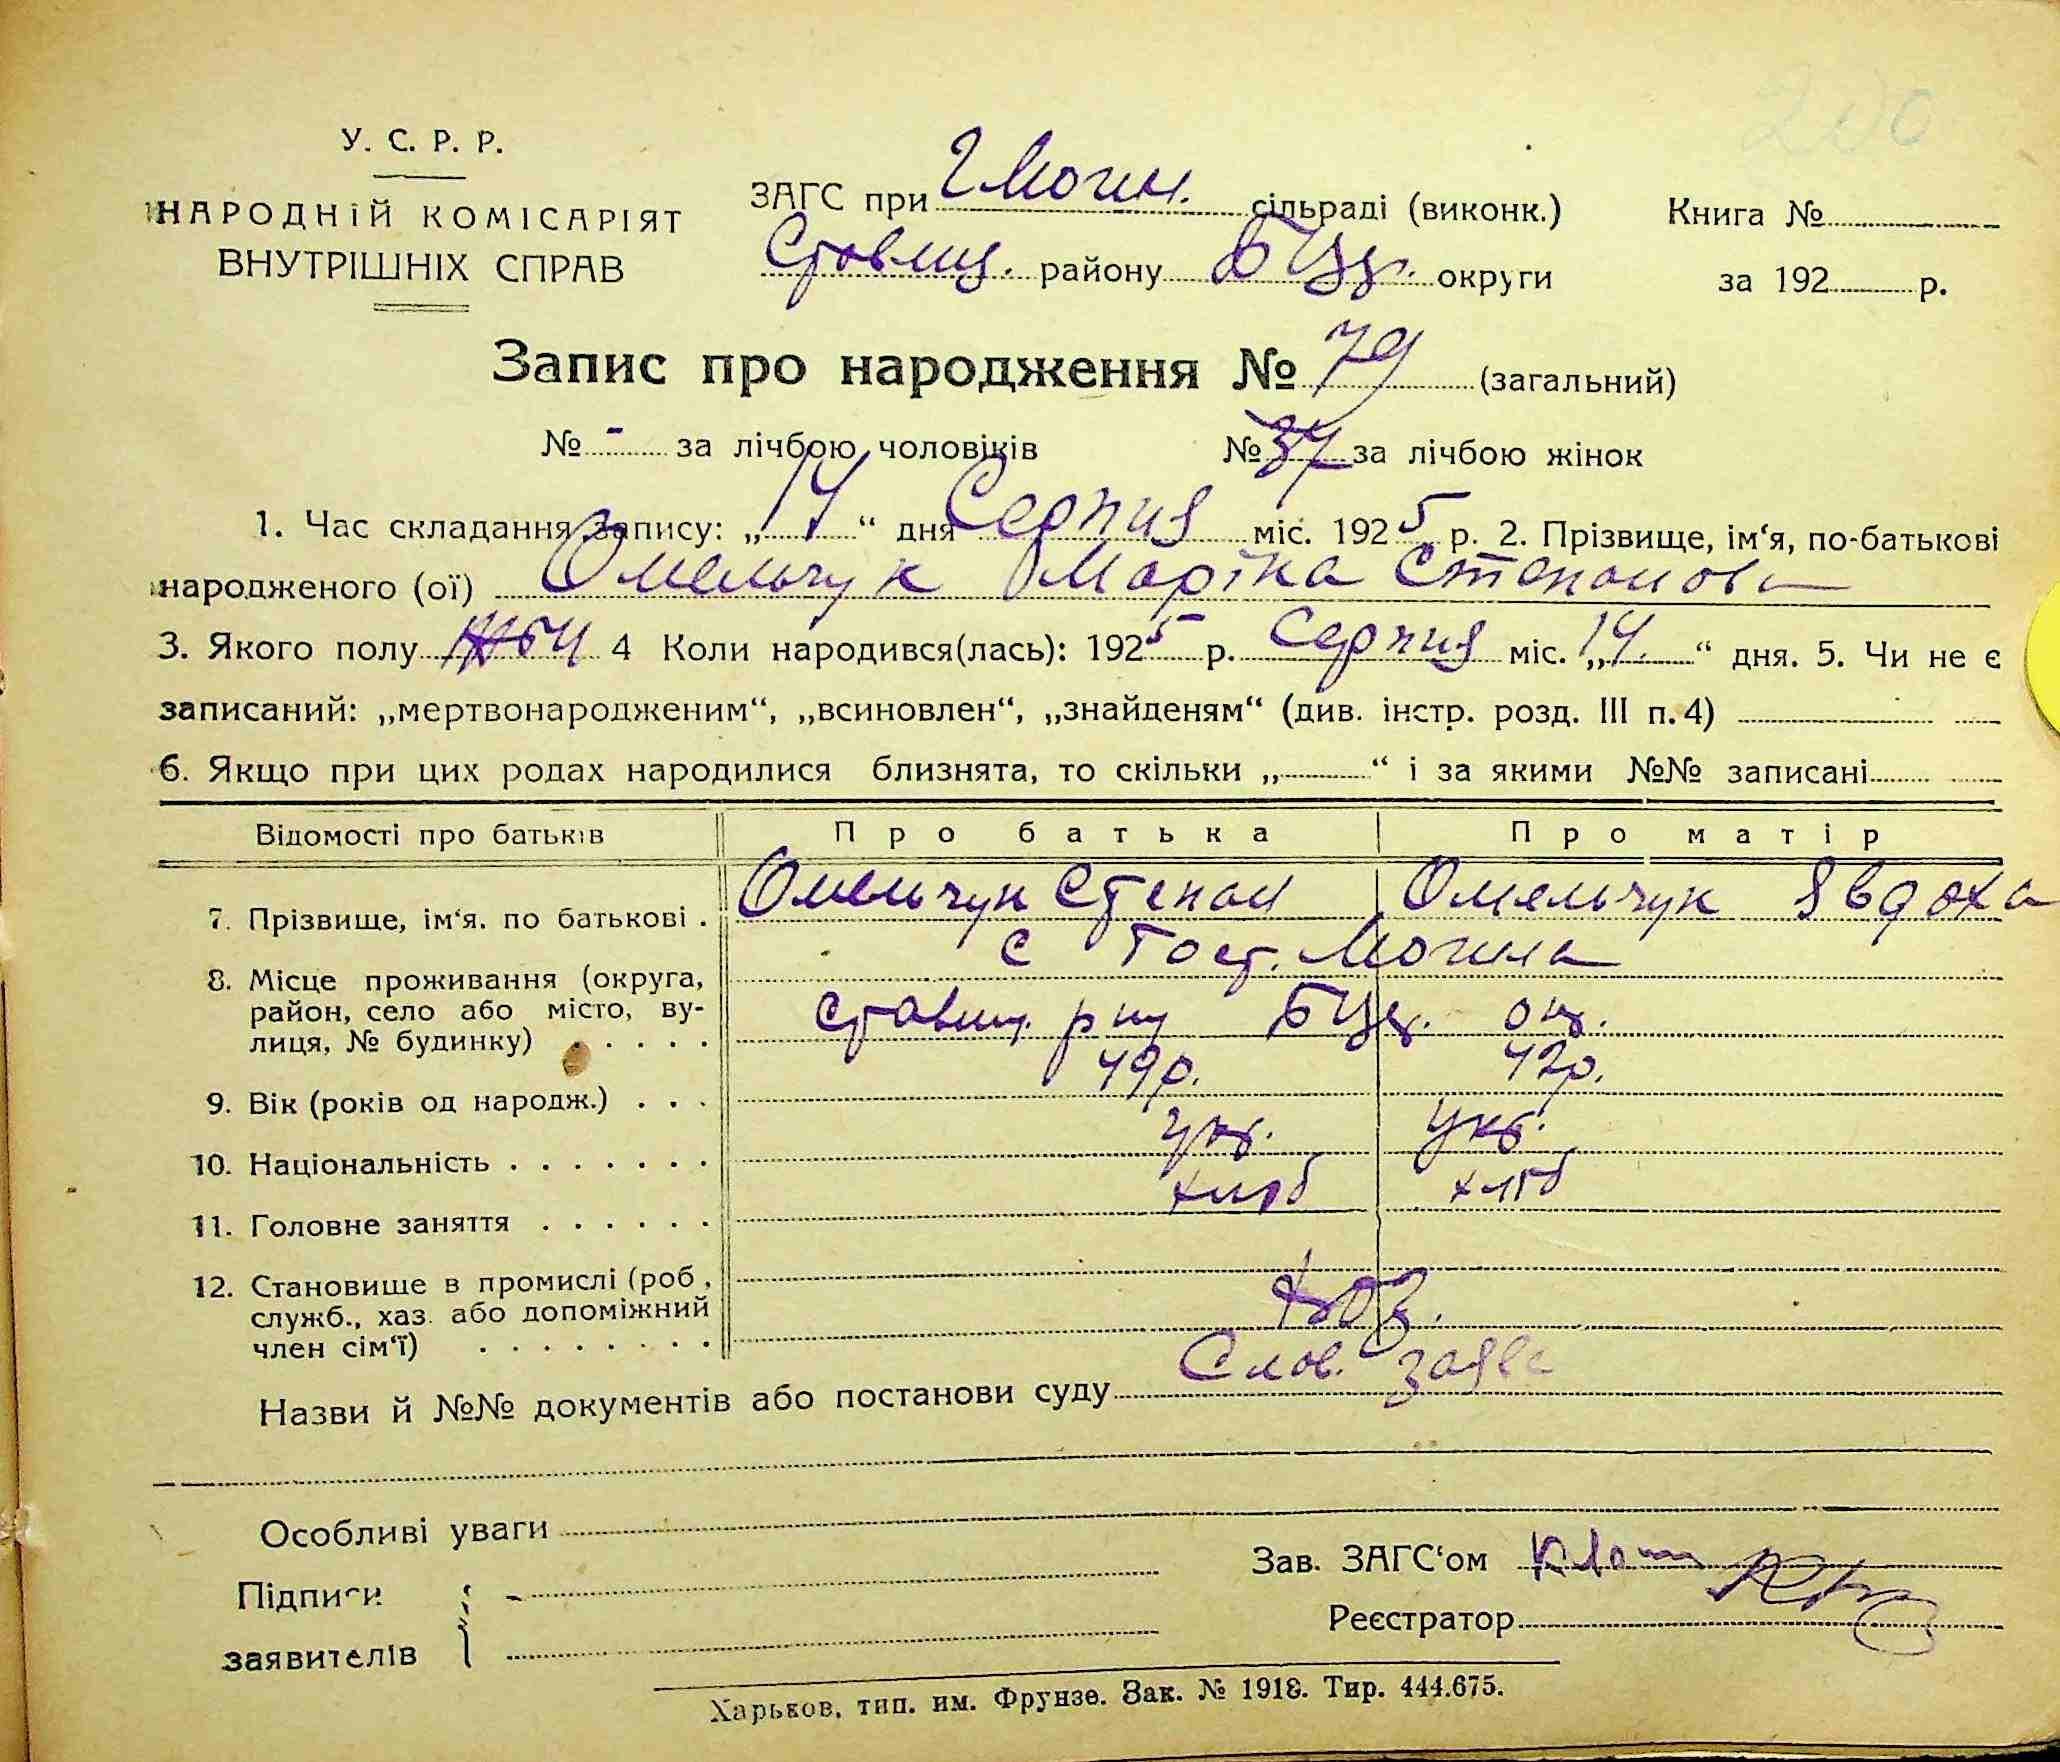 200
У. С. Р. Р.
НАРОДНІЙ КОМІСАРІЯТ
ВНУТРІШНІХ СПРАВ
ЗАГС при ГМогил. сільраді (виконк.)
Ставищ. району БЦер. округи
Книга №
за 192 р.
Запис про народження № 79 (загальний)
№ - за лічбою чоловіків № 37 за лічбою жінок
1. Час складання запису: „14“ дня Серпня міс. 1925 р. 2. Прізвище, ім‘я, по-батькові
народженого (ої) Омельчук Маріка Степанова
3. Якого полу жін 4 Коли народився(лась): 1925 р. Серпня міс. „14.“ дня. 5. Чи не є
записаний: „мертвонародженим“, „всиновлен“, „знайденям“ (див. інстр. розд. III п. 4)
6. Якщо при цих родах народилися близнята, то скільки „ “ і за якими №№ записані
Відомості про батьків Про батька Про матір
7. Прізвище, ім‘я. по батькові . Омельчук Степан Омельчук Явдоха
8. Місце проживання (округа, район, село або місто, вулиця, № будинку) . . . . .
с Гост. Могила
Ставищ. р ну БЦер. окр.
9. Вік (років од народж.) . . . 49р. 42р.
10. Національність . . . . . . . укр. Укр.
11. Головне заняття . . . . . . хліб хліб
12. Становище в промислі (роб, служб., хаз. або допоміжний член сім‘ї) . . . . . . . .
Назви й №№ документів або постанови суду Слов. заява
Особливі уваги
Підписи
заявителів
Зав. ЗАГС‘ом
Реєстратор
Харьков, тип. им. Фрунзе. Зак. № 1918. Тир. 444.675.